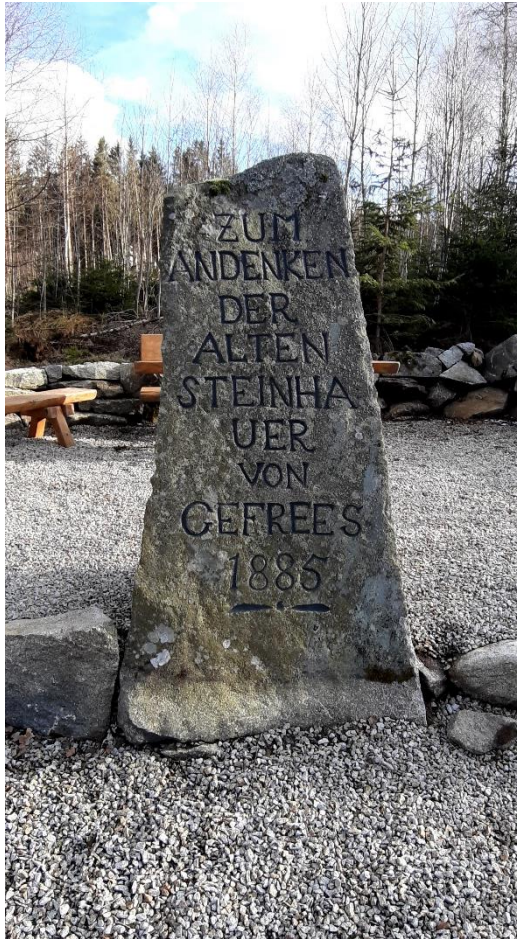 ZUM
ANDENKEN
DER
ALTEN
STEINHA
UER
VON
GEFREES
1885